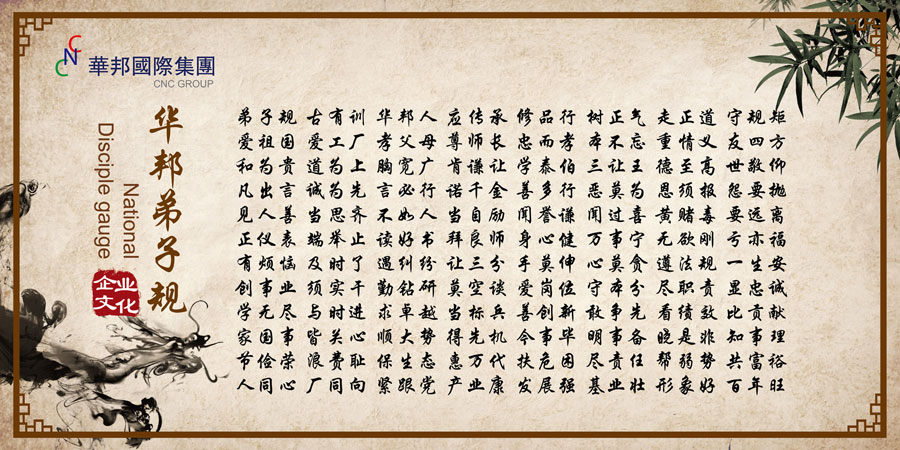 CNC
華邦國際集團
CNC GROUP
华邦弟子规
National
Disciple gauge
企业
文化
弟子规 古有训 华邦人 应传承 修品行 树正气 走正道 守规矩
爱祖国 爱工厂 孝父母 尊师长 忠而孝 本不忘 重情义 友四方
和为贵 道为上 胸宽广 肯谦让 学泰伯 三让王 德至高 世敬仰
凡出言 诚为先 言必行 诺千金 善多行 恶莫为 恩须报 怨要抛
见人善 当思齐 不如人 当自励 闻誉谦 闻过喜 黄赌毒 要远离
正仪表 端举止 读好书 拜良师 身心健 万事宁 无欲刚 亏亦福
有烦恼 及时了 遇纠纷 让三分 手莫伸 心莫贪 遵法规 一生安
创事业 须实干 勤钻研 莫空谈 爱岗位 守本分 尽职责 显忠诚
学无尽 与时进 求卓越 当标兵 善创新 敢争先 看绩效 比贡献
家国事 皆关心 顺大势 得先机 今事毕 明事备 晓是非 知事理
节俭荣 浪费耻 保生态 惠万代 扶危困 尽责任 帮弱势 共富裕
人同心 厂同向 紧跟党 产业康 发展强 基业壮 形象好 百年旺